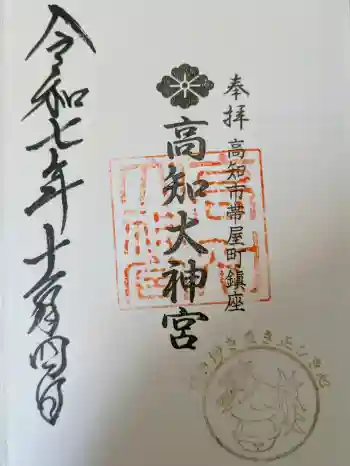 奉拝
高知市帯屋町鎮座
高知大神宮
令和七年十二月四日